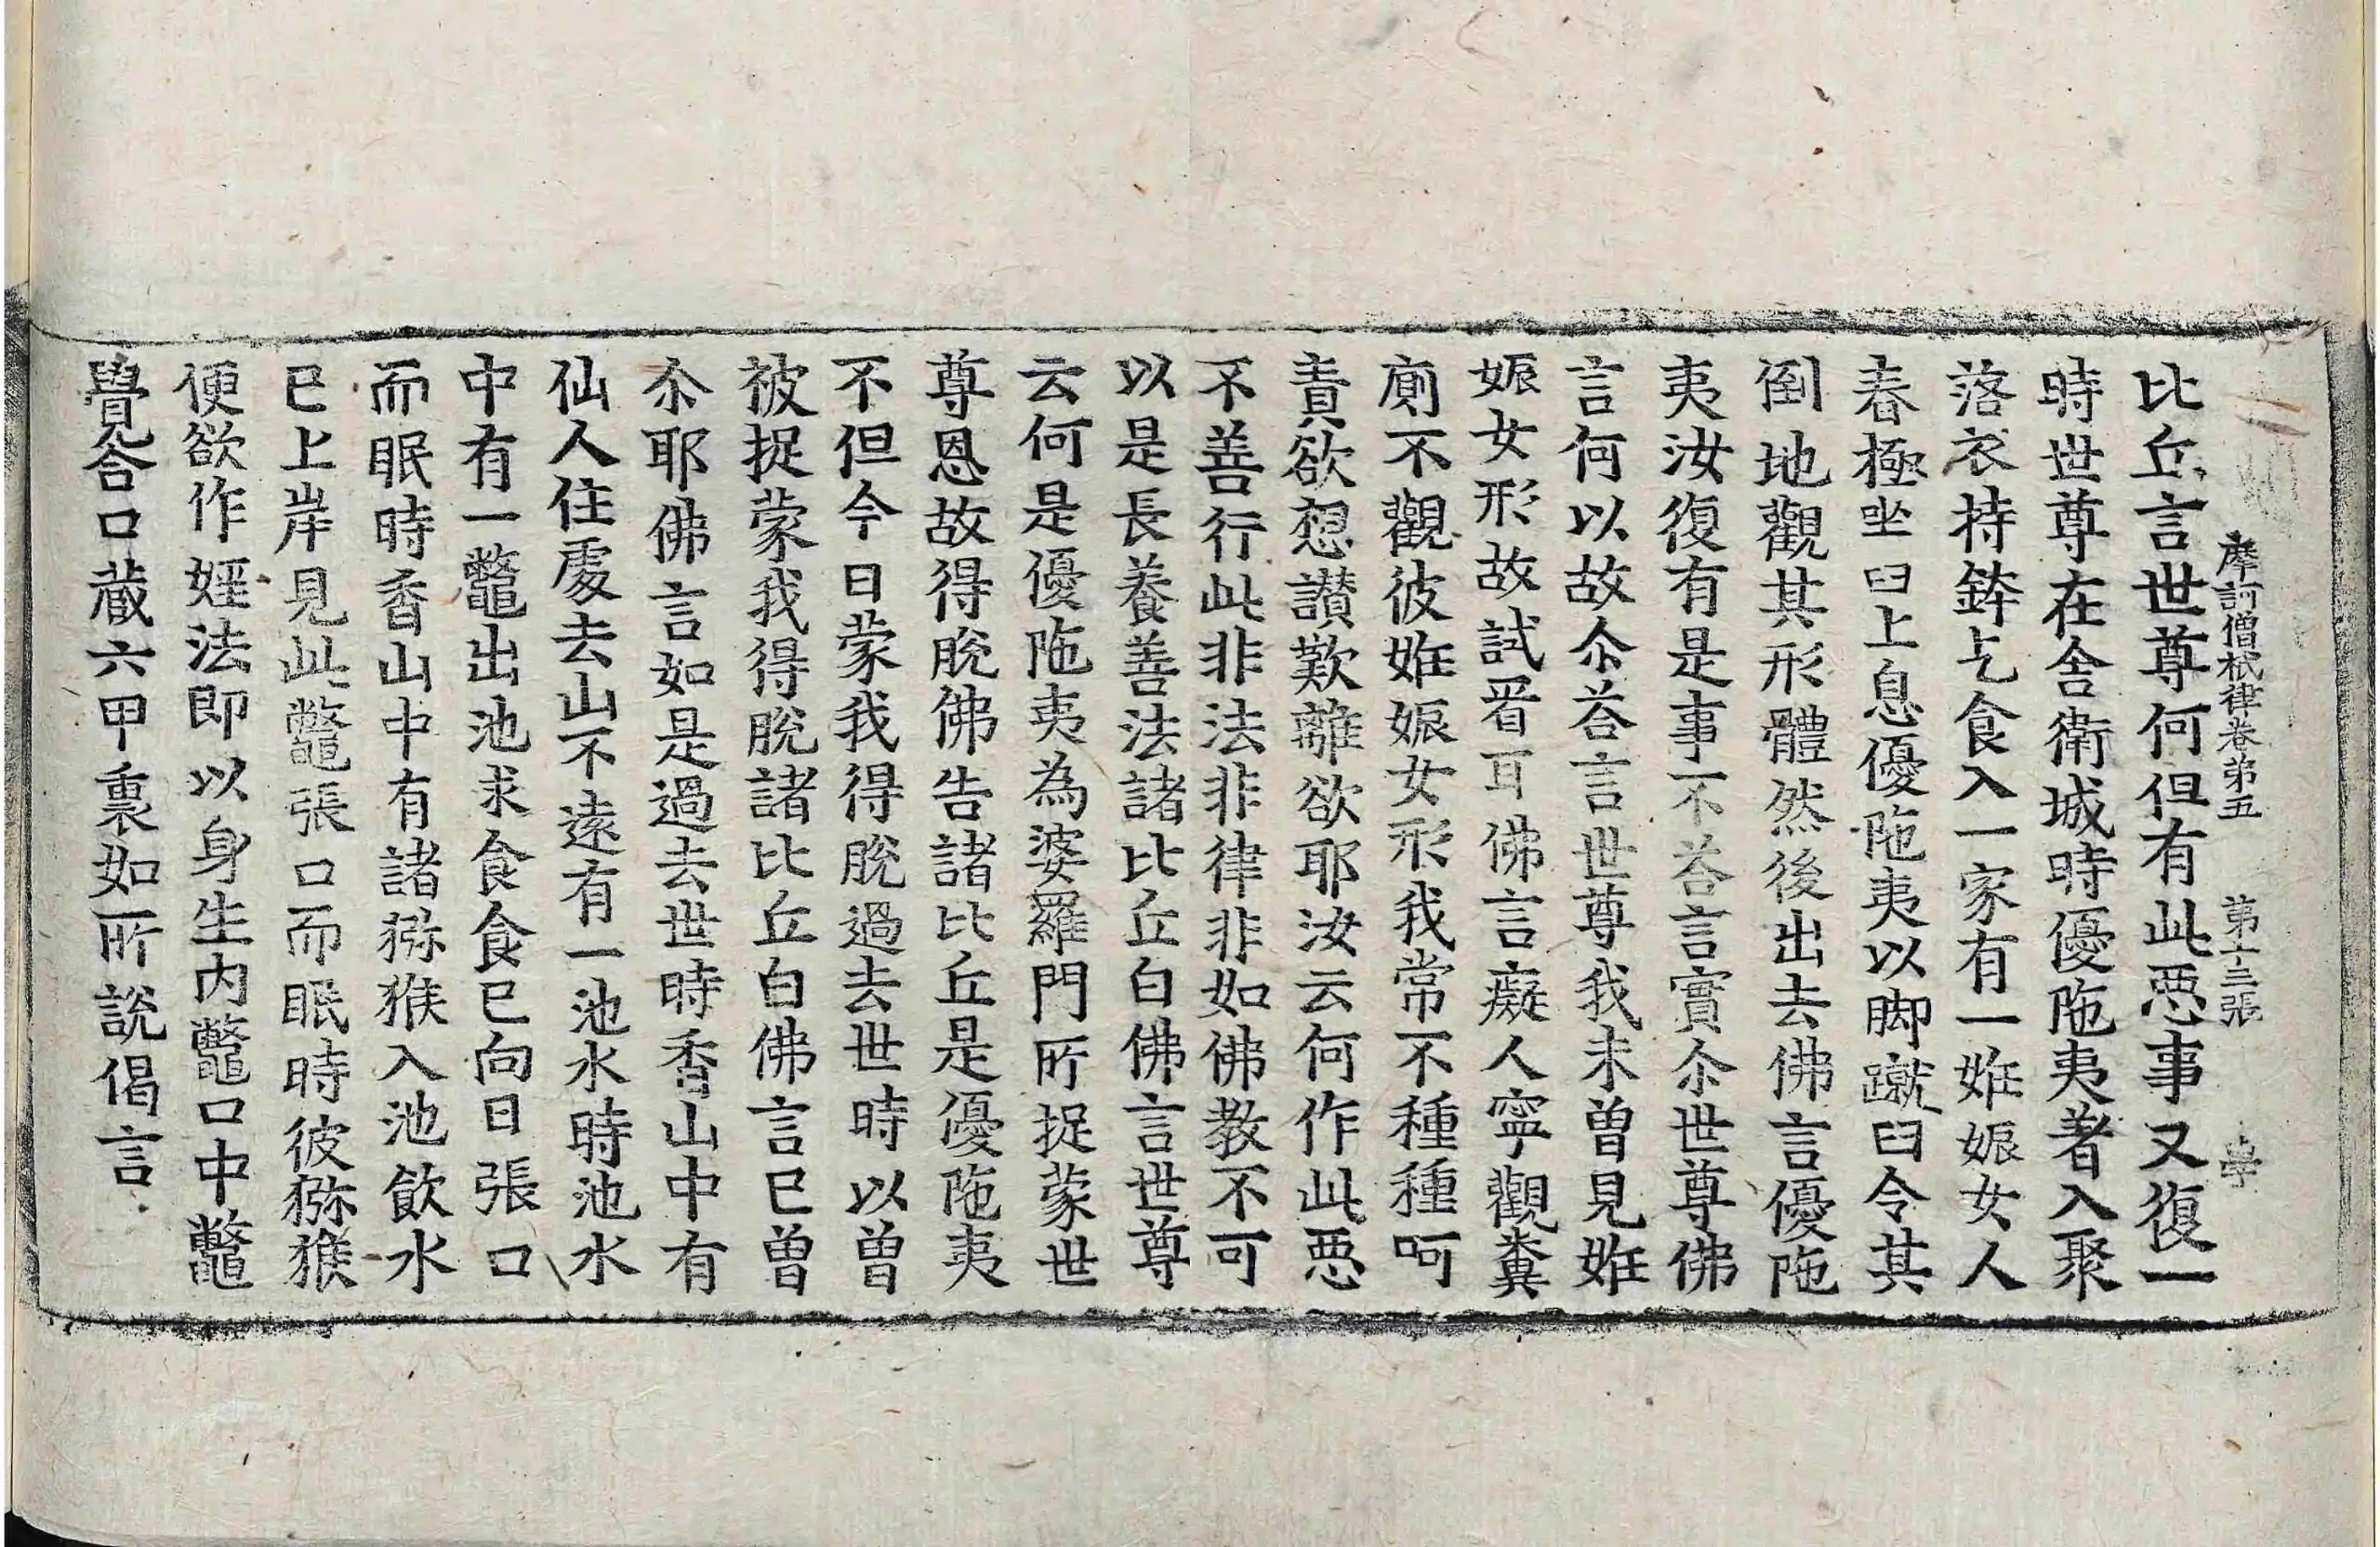 摩訶僧祇律卷第五　第十三張　學
比丘言世尊何但有此惡事又復一
時世尊在舍衛城時優陁夷著入聚
落衣持鉢乞食入一家有一姙娠女人
舂極坐臼上息優陁夷以脚蹴臼令其
倒地觀其形體然後出去佛言優陁
夷汝復有是事不荅言實尒世尊佛
言何以故尒荅言世尊我未曾見姙
娠女形故試看耳佛言癡人寧觀糞
廁不觀彼姙娠女形我常不種種呵
責欲想讃歎離欲耶汝云何作此惡
不善行此非法非律非如佛教不可
以是長養善法諸比丘白佛言世尊
云何是優陁夷為婆羅門所捉蒙世
尊恩故得脫佛告諸比丘是優陁夷
不但今日蒙我得脫過去世時以曾
被捉蒙我得脫諸比丘白佛言已曾
尒耶佛言如是過去世時香山中有
仙人住處去山不遠有一池水時池水
中有一鼈出池求食食已向日張口
而眠時香山中有諸獼猴入池飲水
已上岸見此鼈張口而眠時彼獼猴
便欲作婬法即以身生內鼈口中鼈
覺合口藏六甲裏如所說偈言